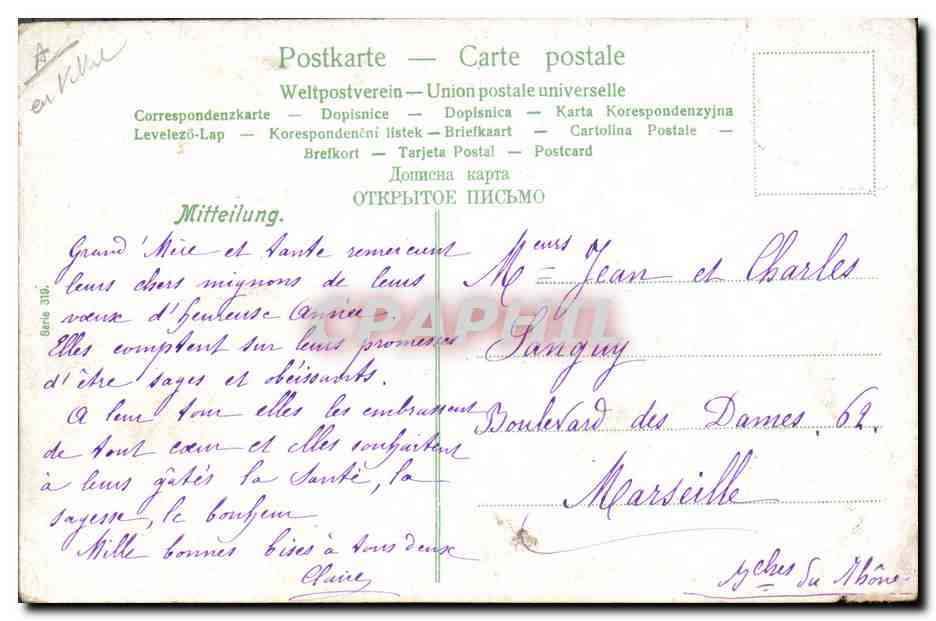 A
en
Postkarte — Carte postale
Weltpostverein — Union postale universelle
Correspondenzkarte — Dopisnice — Dopisnica — Karta Korespondenzyjna
Levelező-Lap — Korespondenční listek — Briefkaart — Cartolina Postale —
Brefkort — Tarjeta Postal — Postcard
Дописна карта
ОТКРЫТОЕ ПИСЬМО
Mitteilung.
Serie 319.
Grand'Mère et tante remercient
leurs chers mignons de leurs
vœux d'heureuse année.
Elles comptent sur leurs promesses
d'être sages et obéissants.
A leur tour elles les embrassent
de tout cœur et elles souhaitent
à leurs gâtés la santé, la
sagesse, le bonheur
Mille bonnes bises à tous deux
Claire
Meurs Jean et Charles
Sanguy
Boulevard des Dames. 62.
Marseille
Bches du Rhône
CPAРНП